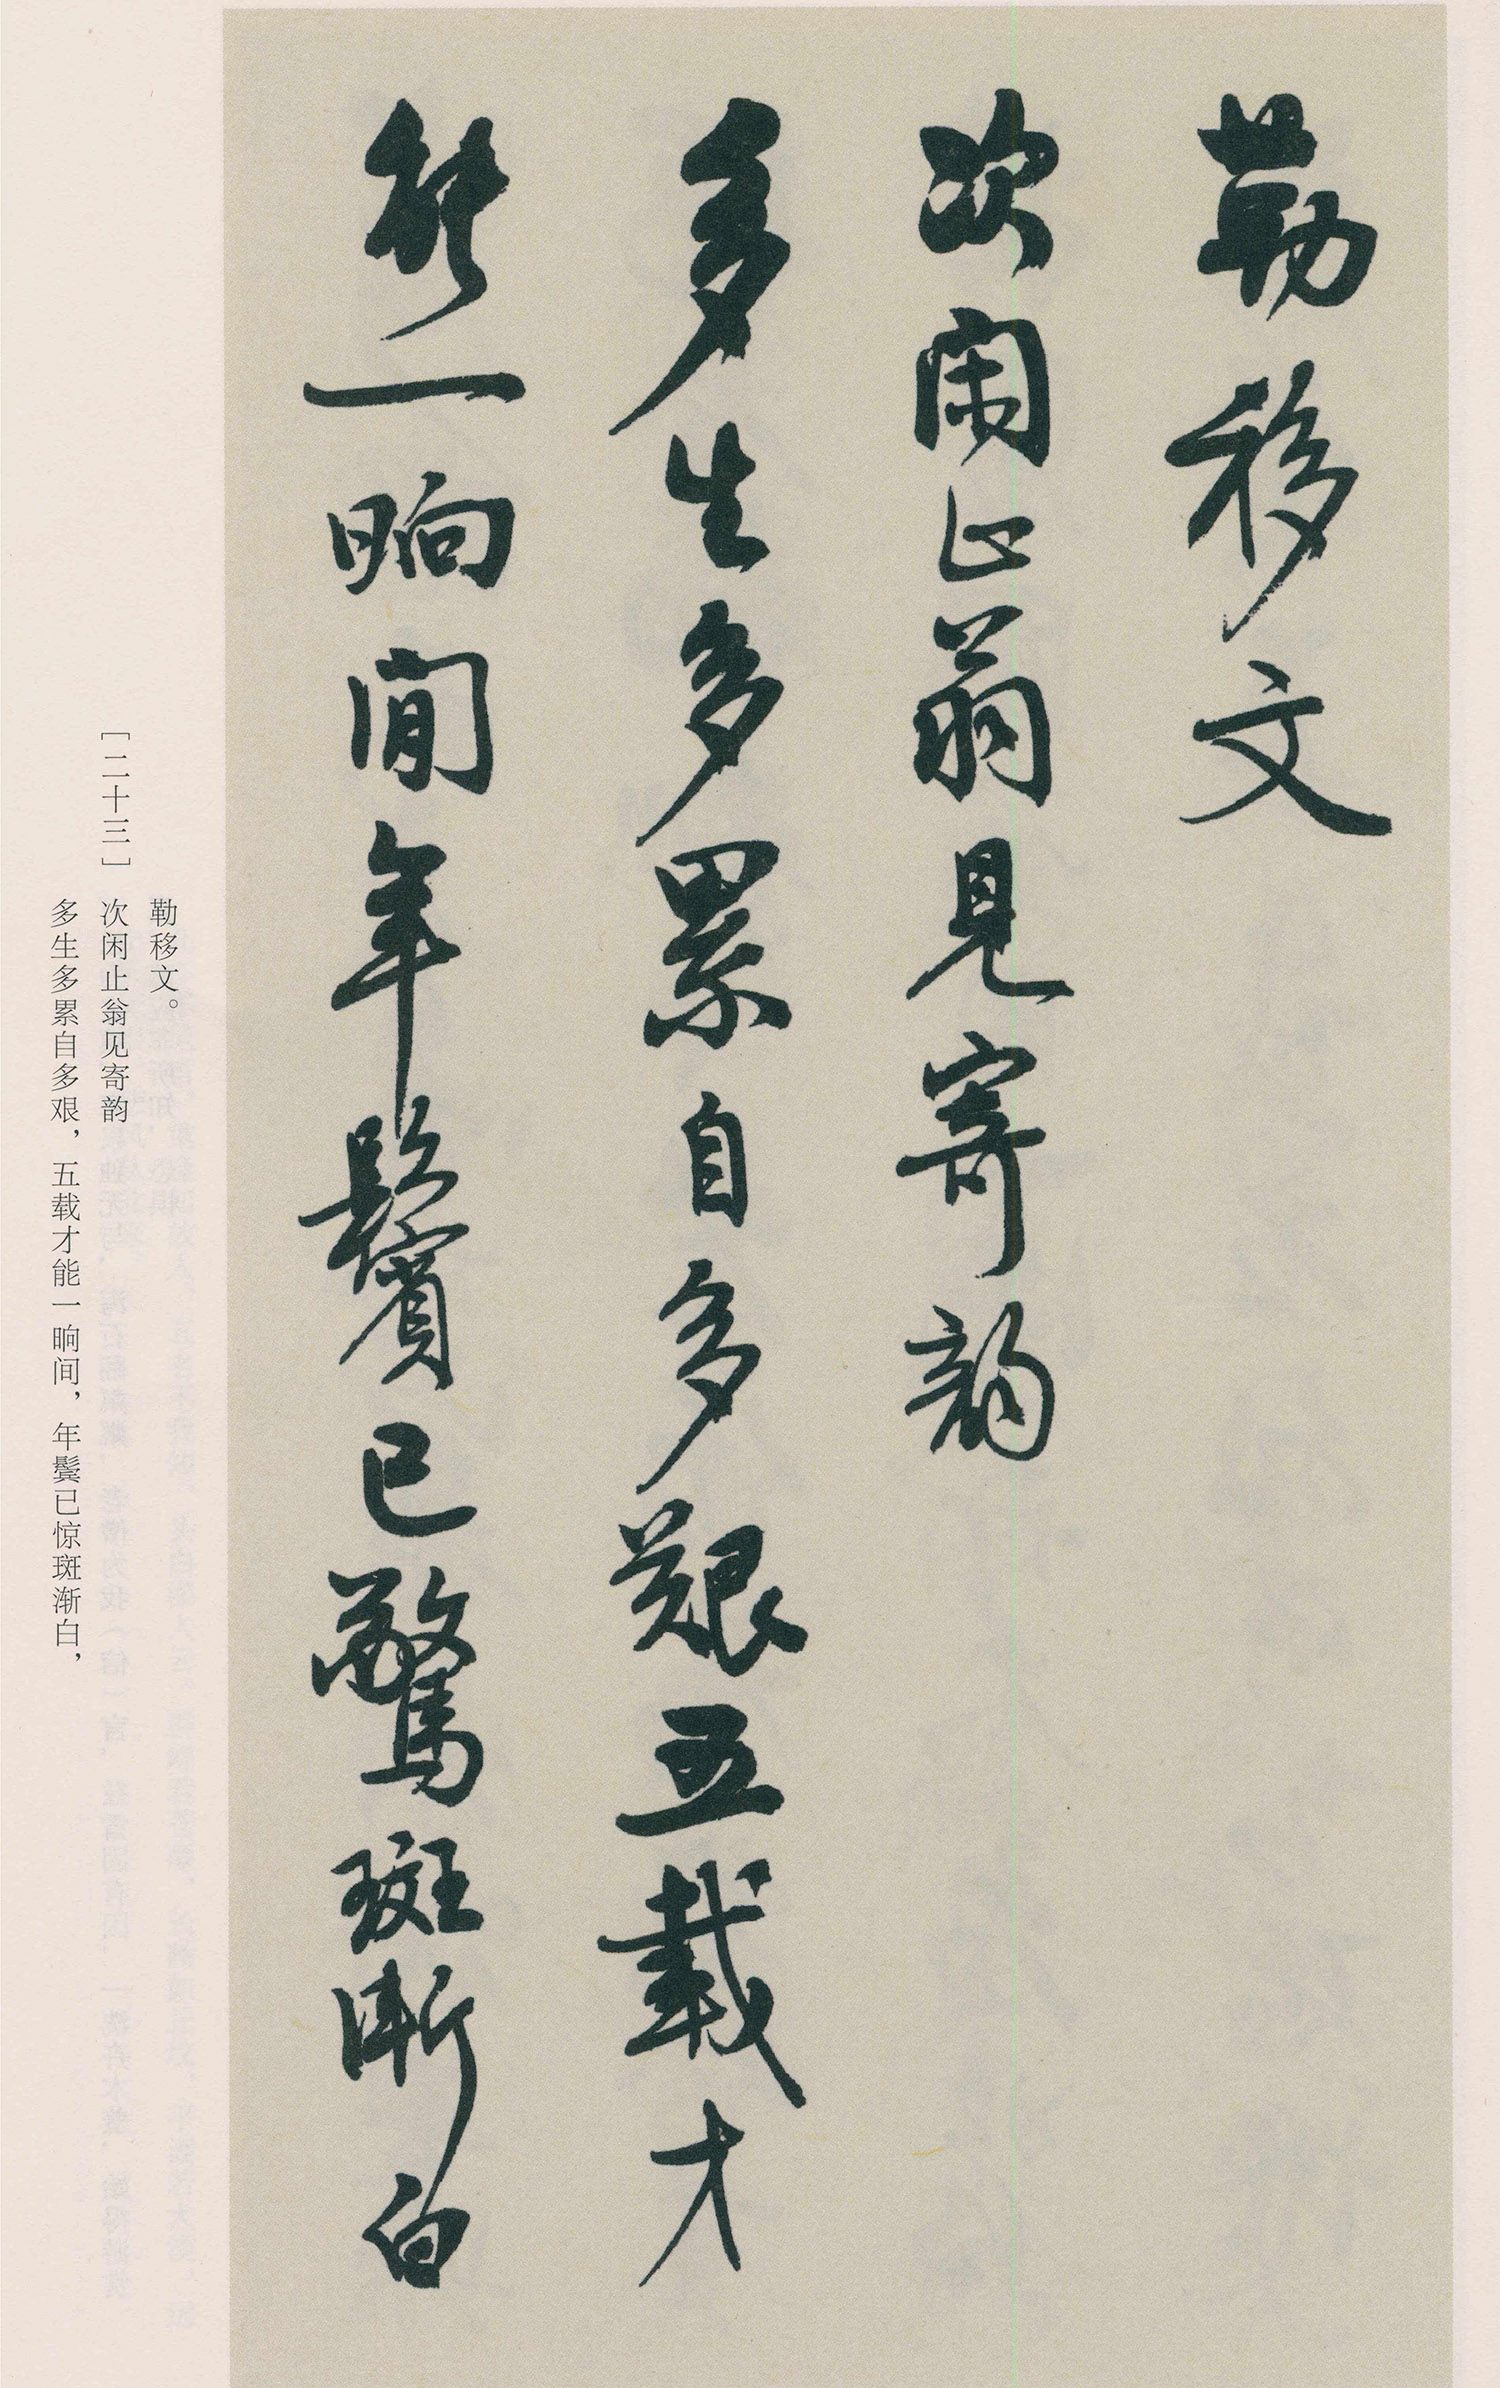 勒移文
次闲止翁見寄韵
多生多累自多艱五載才
能一晌間年鬢已驚斑漸白
勒移文。
[二十三] 次闲止翁见寄韵
多生多累自多艰，五载才能一晌间，年鬓已惊斑渐白，